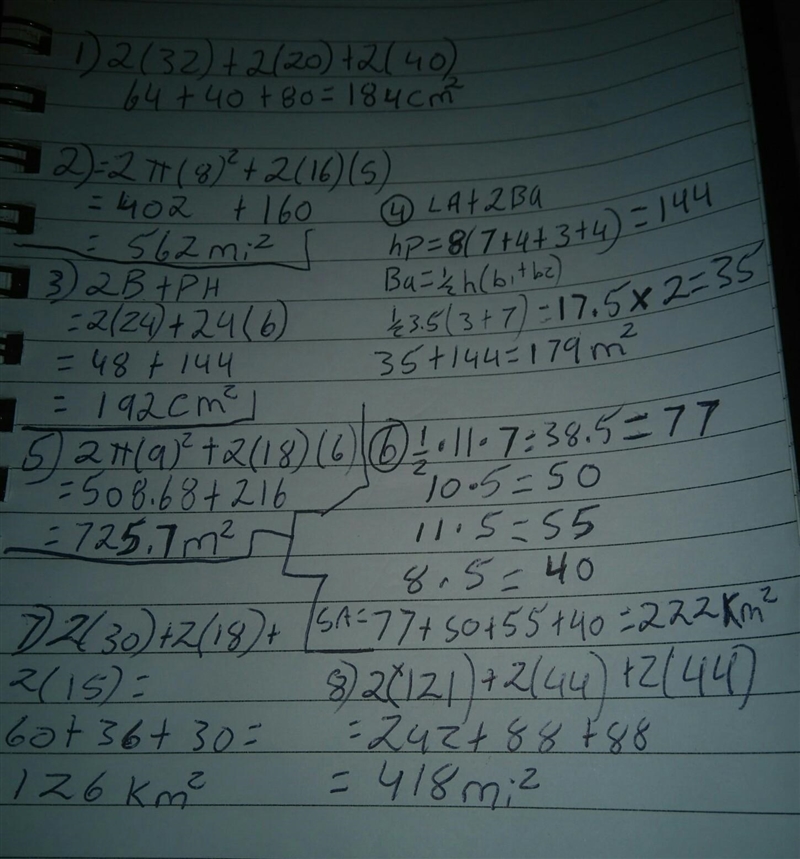 1) 2(32)+2(20)+2(40)
64+40+80=184cm²
2)=2π(8)²+2(16)(5)
=402 +160
=562mi²
3) 2B+PH
=2(24)+24(6)
=48+144
=192cm²
④ LA+2Ba
hP=8(7+4+3+4)=144
Ba=½h(b₁+b₂)
½3.5(3+7)=17.5×2=35
35+144=179m²
5) 2π(9)²+2(18)(6)
=508.68+216
=725.7m²
⑥ ½·11·7=38.5=77
10·5=50
11·5=55
8·5=40
SA=77+50+55+40=222Km²
7) 2(30)+2(18)+
2(15)=
60+36+30=
126 Km²
8) 2(121)+2(44)+2(44)
=242+88+88
=418mi²